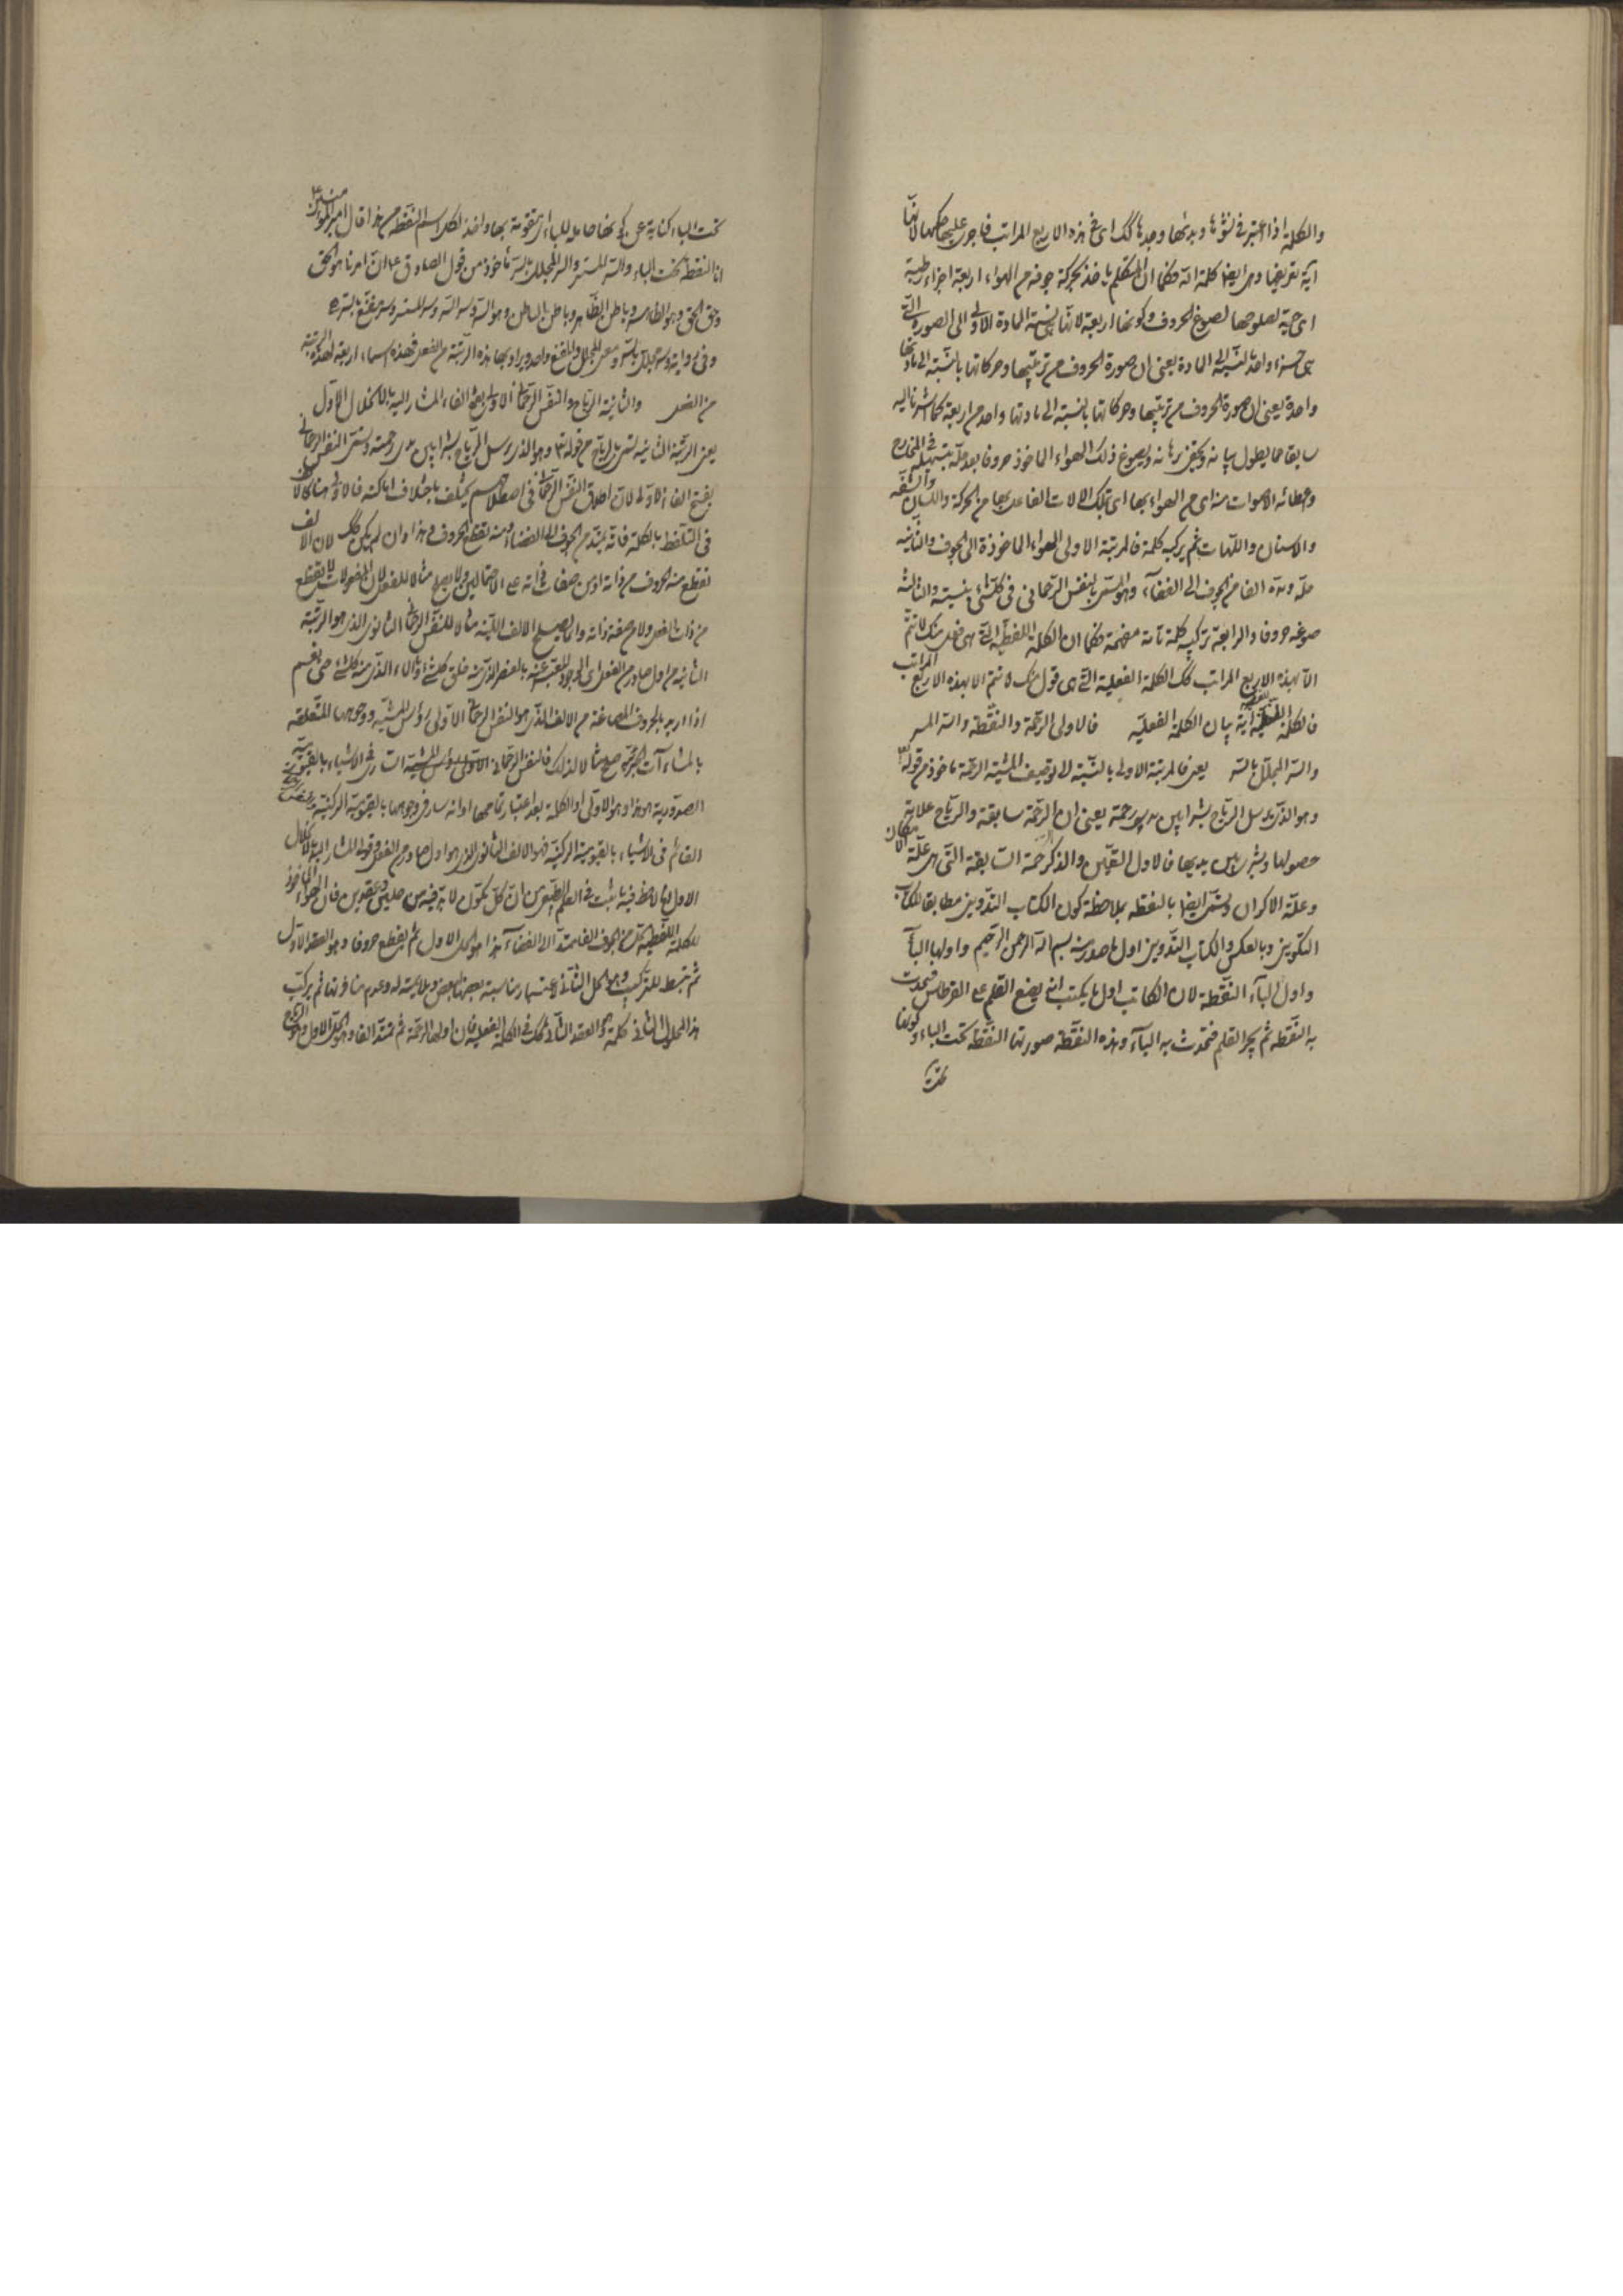 والكلمة اذا اعتبر في نشؤها وبدئها وجدها كك اى في هذه الاربع المراتب فاجر عليها حكمها لانها
آية تعريفها وهى ايضا كلمة الله فكما ان المتكلم ياخذ بحركة جوفه من الهواء اربعة اجزاء رطبة
اى حية لصلوحها لصوغ الحروف وكونها اربعة لانها نسبة المادة الاولى الى الصورة التى
هى جزء واحد بالنسبة الى المادة يعنى ان صورة الحروف من ترتيبها وحركاتها بالنسبة الى مادتها
واحدة يعنى ان صورة الحروف من ترتيبها وحركاتها بالنسبة الى مادتها واحد من اربعة كما اشرنا اليه
سابقا مما يطول بيانه وبرهانه ويصوغ ذلك الهواء الماخوذ حروفا بعد حله بتسهيله فى المخارج
واعطائه الاصوات منه اى من الهواء بها اى بتلك الالات الفاعل بها من الحركة واللسان والشفة
والاسنان واللهات ثم يركبه كلمة فالمرتبة الاولى الهواء الماخوذة الى الجوف والثانية
حله ومده الفا من الجوف الى الفضآء وهو المسمى بالنفس الرحمانى فى كل شئ بنسبته والثالثة
صوغه حروفا والرابعة تركيبه كلمة تامة فكما ان الكلمة اللفظية التى هى فعل منك لا تتم
الا بهذه الاربع المراتب كك الكلمة الفعلية التى هى قول منك لا تتم الا بهذه الاربع المراتب
فالكلمة اللفظية آية بيان الكلمة الفعلية فالاولى الرحمة والنقطة والسر المستسر
والسر المجلل بالسر يعنى فالمرتبة الاولى بالنسبة الى توصيف المشية الرحمة ماخوذ من قوله
وهو الذى يرسل الرياح بشرا بين يدى رحمته يعنى ان الرحمة سابقة والرياح علامة
حصولها وتبشر بين يديها فالاول التعين والذكر رحمة السابقة التى هى علة الامكان
وعلة الاكوان وتسمى ايضا بالنقطة بملاحظة كون الكتاب التدوينى مطابقا للكتاب
التكوينى وبالعكس والكتاب التدوينى اول ما صدر منه بسم الله الرحمن الرحيم واولها البآء
واول البآء النقطة لان الكاتب اول ما يكتب انه يضع القلم على القرطاس فيحدث
به النقطة ثم يجر القلم فتحدث به البآء وهذه النقطة صورتها النقطة تحت الباء وكونها
تحت
تحت الباء كناية عن كونها حاملة للباء اى متقومة بها واخذ لكل اسم النقطة من هذا قال امير المؤمنين
انا النقطة تحت الباء والسر المستسر والسر المجلل بالسر ماخوذ من قول الصادق ع ان امرنا هو الحق
وحق الحق وهو الظاهر وباطن الظاهر وباطن الباطن وهو السر وسر السر وسر المستسر وسر مقنع بالسر
وفى رواية وسر مجلل بالسر ومعنى المجلل والمقنع واحد ويراد بها هذه الرتبة من الفعل فهذه اسماء اربعة لهذه الرتبة
من الفعل والثانية الرياح والنفس الرحمانى الاولى بفتح الفاء المشار اليه بالانحلال الاول
يعنى الرتبة الثانية تسمى بالرياح من قوله تع وهو الذى يرسل الرياح بشرا بين يدى رحمته وتسمى النفس الرحمانى
بفتح الفاء الاولى لان اطلاق النفس الرحمانى فى اصطلاحهم يختلف باختلاف اماكنه
فى التلفظ بالكلمة فانه يمتد من الجوف الى الفضاء ومنه تقطع الحروف وهذا وان لم يكن كك لان الالف
تقطع منه الحروف من ذاته او من صفات ذاته على الاحتمالين ولا يصح مثالا للفعل لان المفعولات لا تقطع
من ذات الفعل ولا من صفة ذاته وانما يصلح الالف اللينة مثالا للنفس الرحمانى الثانوى الذى هو الرتبة
الثانية من اول صادر من الفعل اى الوجود المعبر عنه بالعنصر الذى منه خلق كل شئ والماء الذى منه كل شئ حى نعم
اذا اريد بالحروف المصاغة من الالف الذى هو النفس الرحمانى الاولى رؤس المشية ووجوهها المتعلقة
بالمشاءآت الجزئية صح مثالا لذلك فالنفس الرحمانى الاولى رؤس المشية السارى فى الاشياء بالقيومية
الصدورية هو هذا وهو الاولى
القائم فى الاشياء بالقيومية الركنية فهو الالف الثانوى الذى هو اول صادر من الفعل وقوله المشار اليه بالانحلال
الاول لما لاحظ فيه ما ثبت فى العلم الطبيعى من ان كل مكون لا بد فيه من حلين وعقدين فان الهواء الماخوذ
للكلمة اللفظية من الجوف الفا ممتدا الى الفضاء هذا هو الحل الاول ثم يقطع حروفا وهو العقد الاول
ثم تبسط للتركيب وهو الحل الثانى باعتبار مناسبة بعضها لبعض وملايمته له وعدم منافرتها ثم يركب
هذا المحلول الثانى كلمة وهو العقد الثانى وكك فى الكلمة الفعلية فان اولها الرحمة ثم تمتد الفا وهو الحل الاول وهو الرياح